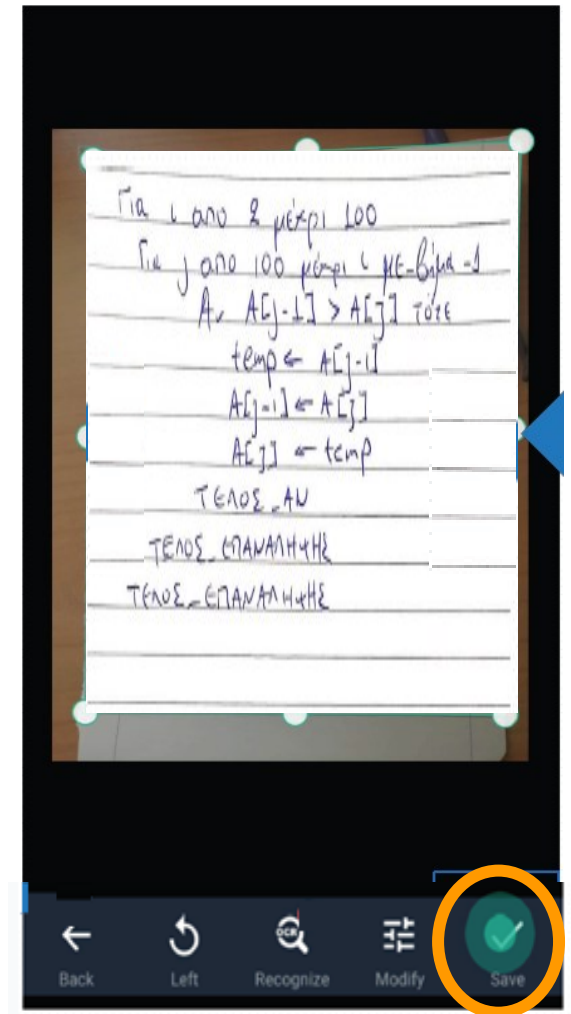 Για ι απο 2 μέχρι 100
Για j απο 100 μέχρι ι με-βήμα -1
Αν A[j-1] > A[j] τότε
temp ← A[j-1]
A[j-1] ← A[j]
A[j] ← temp
ΤΕΛΟΣ_ΑΝ
ΤΕΛΟΣ_ΕΠΑΝΑΛΗΨΗΣ
ΤΕΛΟΣ_ΕΠΑΝΑΛΗΨΗΣ
OCR
Back Left Recognize Modify Save